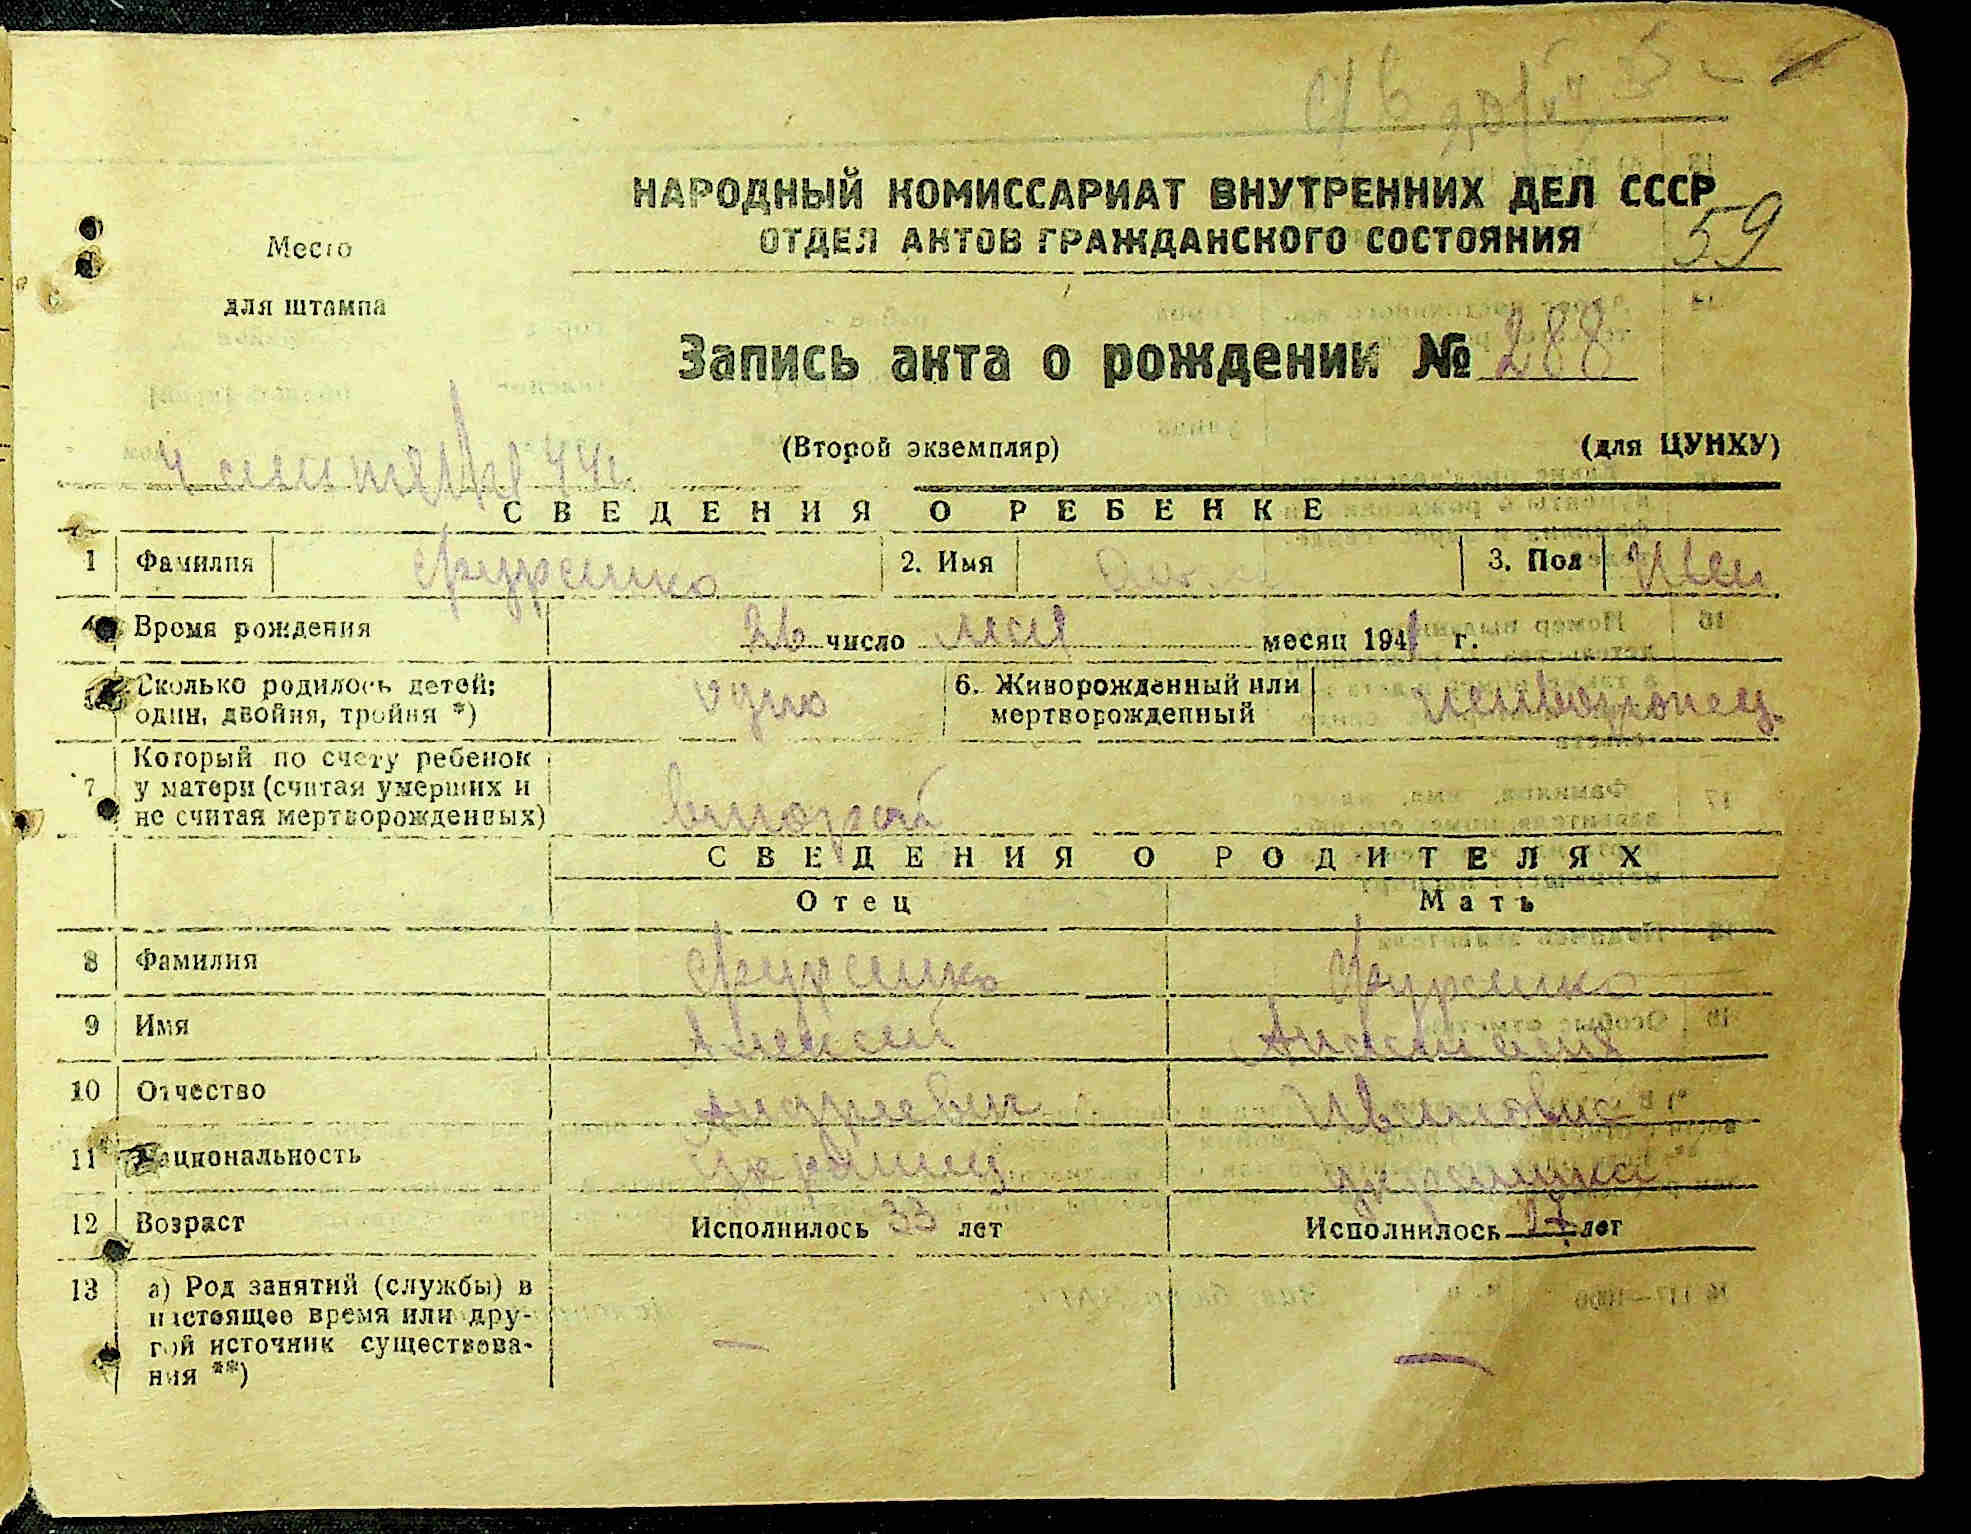 НАРОДНЫЙ КОМИССАРИАТ ВНУТРЕННИХ ДЕЛ СССР
59
ОТДЕЛ АКТОВ ГРАЖДАНСКОГО СОСТОЯНИЯ
Место
для штампа
Запись акта о рождении № 288
4 сентября 44г.
(Второй экземпляр) (для ЦУНХУ)
СВЕДЕНИЯ О РЕБЕНКЕ
1 Фамилия Фурсенко 2. Имя 3. Пол Жен
4 Время рождения 26 число мая месяц 1941 г.
5 Сколько родилось детей; один, двойня, тройня *) одно 6. Живорожденный или мертворожденный
7 Который по счету ребенок
у матери (считая умерших и
не считая мертворожденных) второй
СВЕДЕНИЯ О РОДИТЕЛЯХ
Отец Мать
8 Фамилия Фурсенко Фурсенко
9 Имя Алексей Анастасия
10 Отчество Андреевич Ивановна
11 Национальность украинец украинка
12 Возраст Исполнилось 33 лет Исполнилось 27 лет
13 а) Род занятий (службы) в
настоящее время или дру-
гой источник существова-
ния **) — —